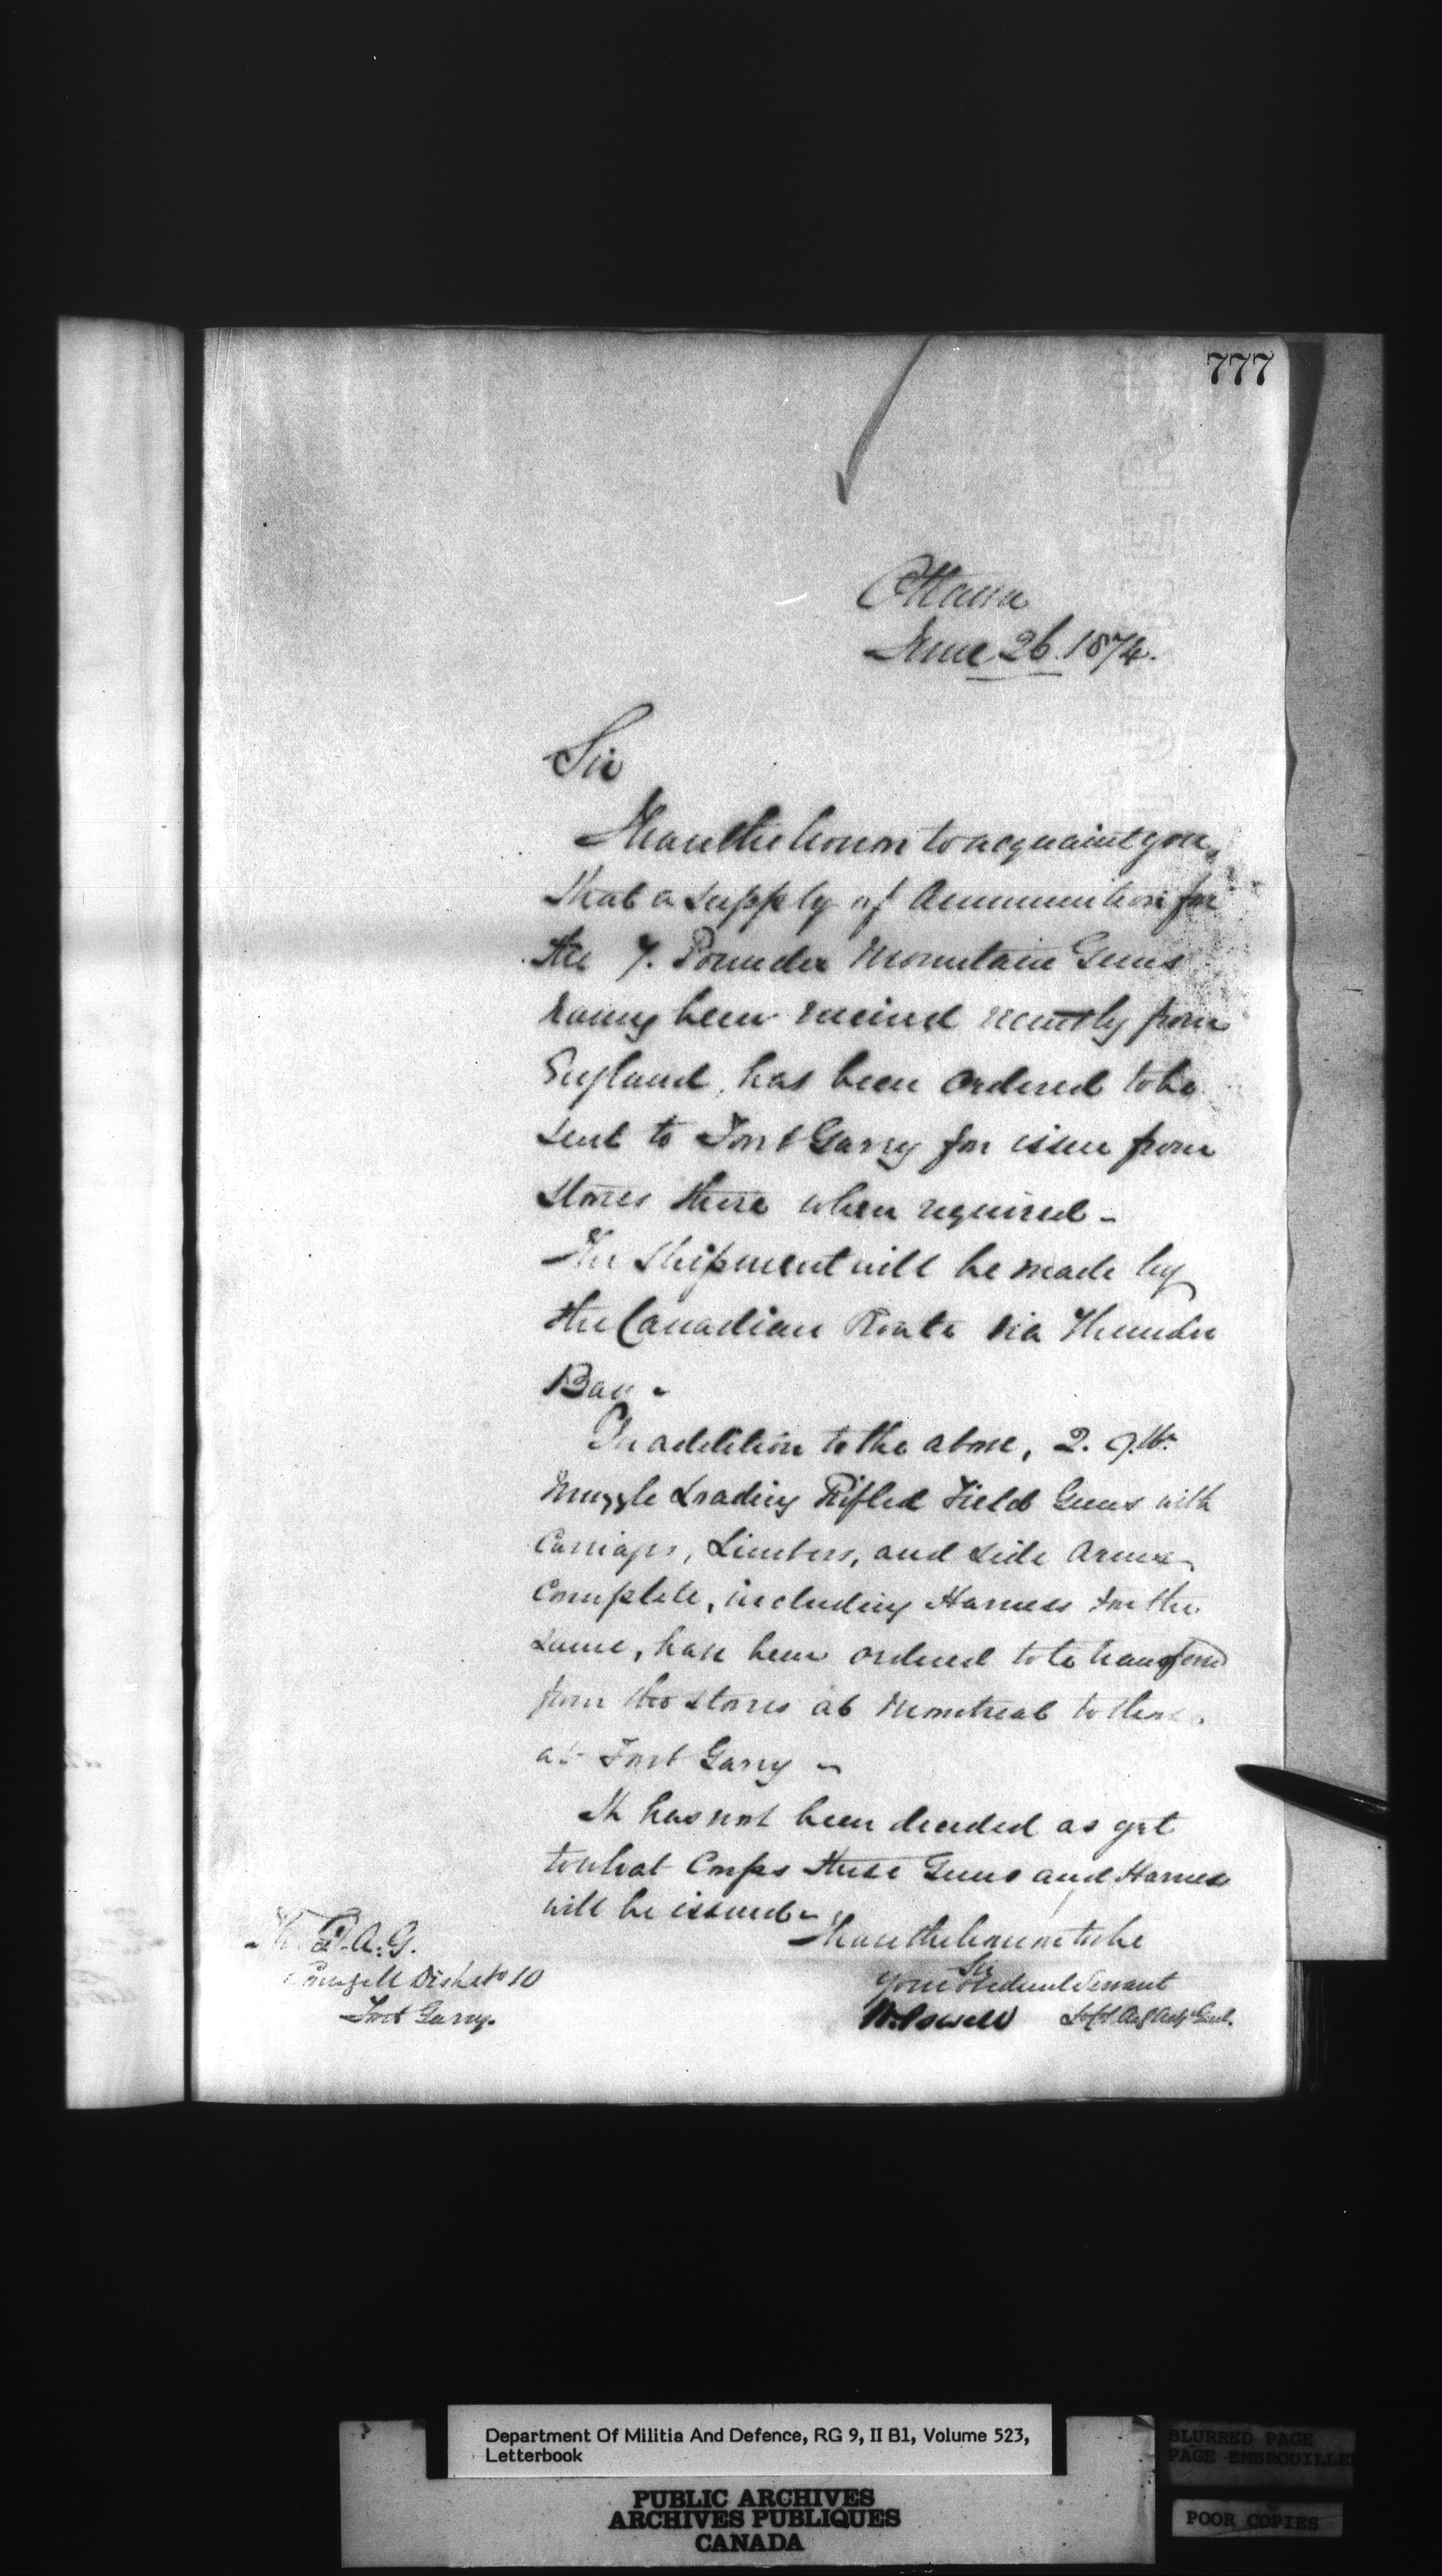 777
Ottawa
June 26. 1874.
Sir
I have the honor to acquaint you,
that a supply of Ammunition for
the 7. Pounder Mountain Guns
having been received recently from
England, has been ordered to be
sent to Fort Garry for issue from
stores there when required -
The Shipment will be made by
the Canadian Route via Thunder
Bay -
In addition to the above, 2. 9. lbr
Muzzle Loading Rifled Field Guns with
Carriages, Limbers, and Side Arms
Complete, including Harness for the
same, have been ordered to be transferred
from the stores at Montreal to those
at Fort Garry -
It has not been decided as yet
to what Corps these Guns and Harness
will be issued -
I have the honor to be
Sir
Your Obedient Servant
W. Powell
The D.A.G.
Comg Mil District No 10
Fort Garry.
Department Of Militia And Defence, RG 9, II B1, Volume 523,
Letterbook
PUBLIC ARCHIVES
ARCHIVES PUBLIQUES
CANADA
BLURRED PAGE
PAGE EMBROUILLEE
POOR COPIES